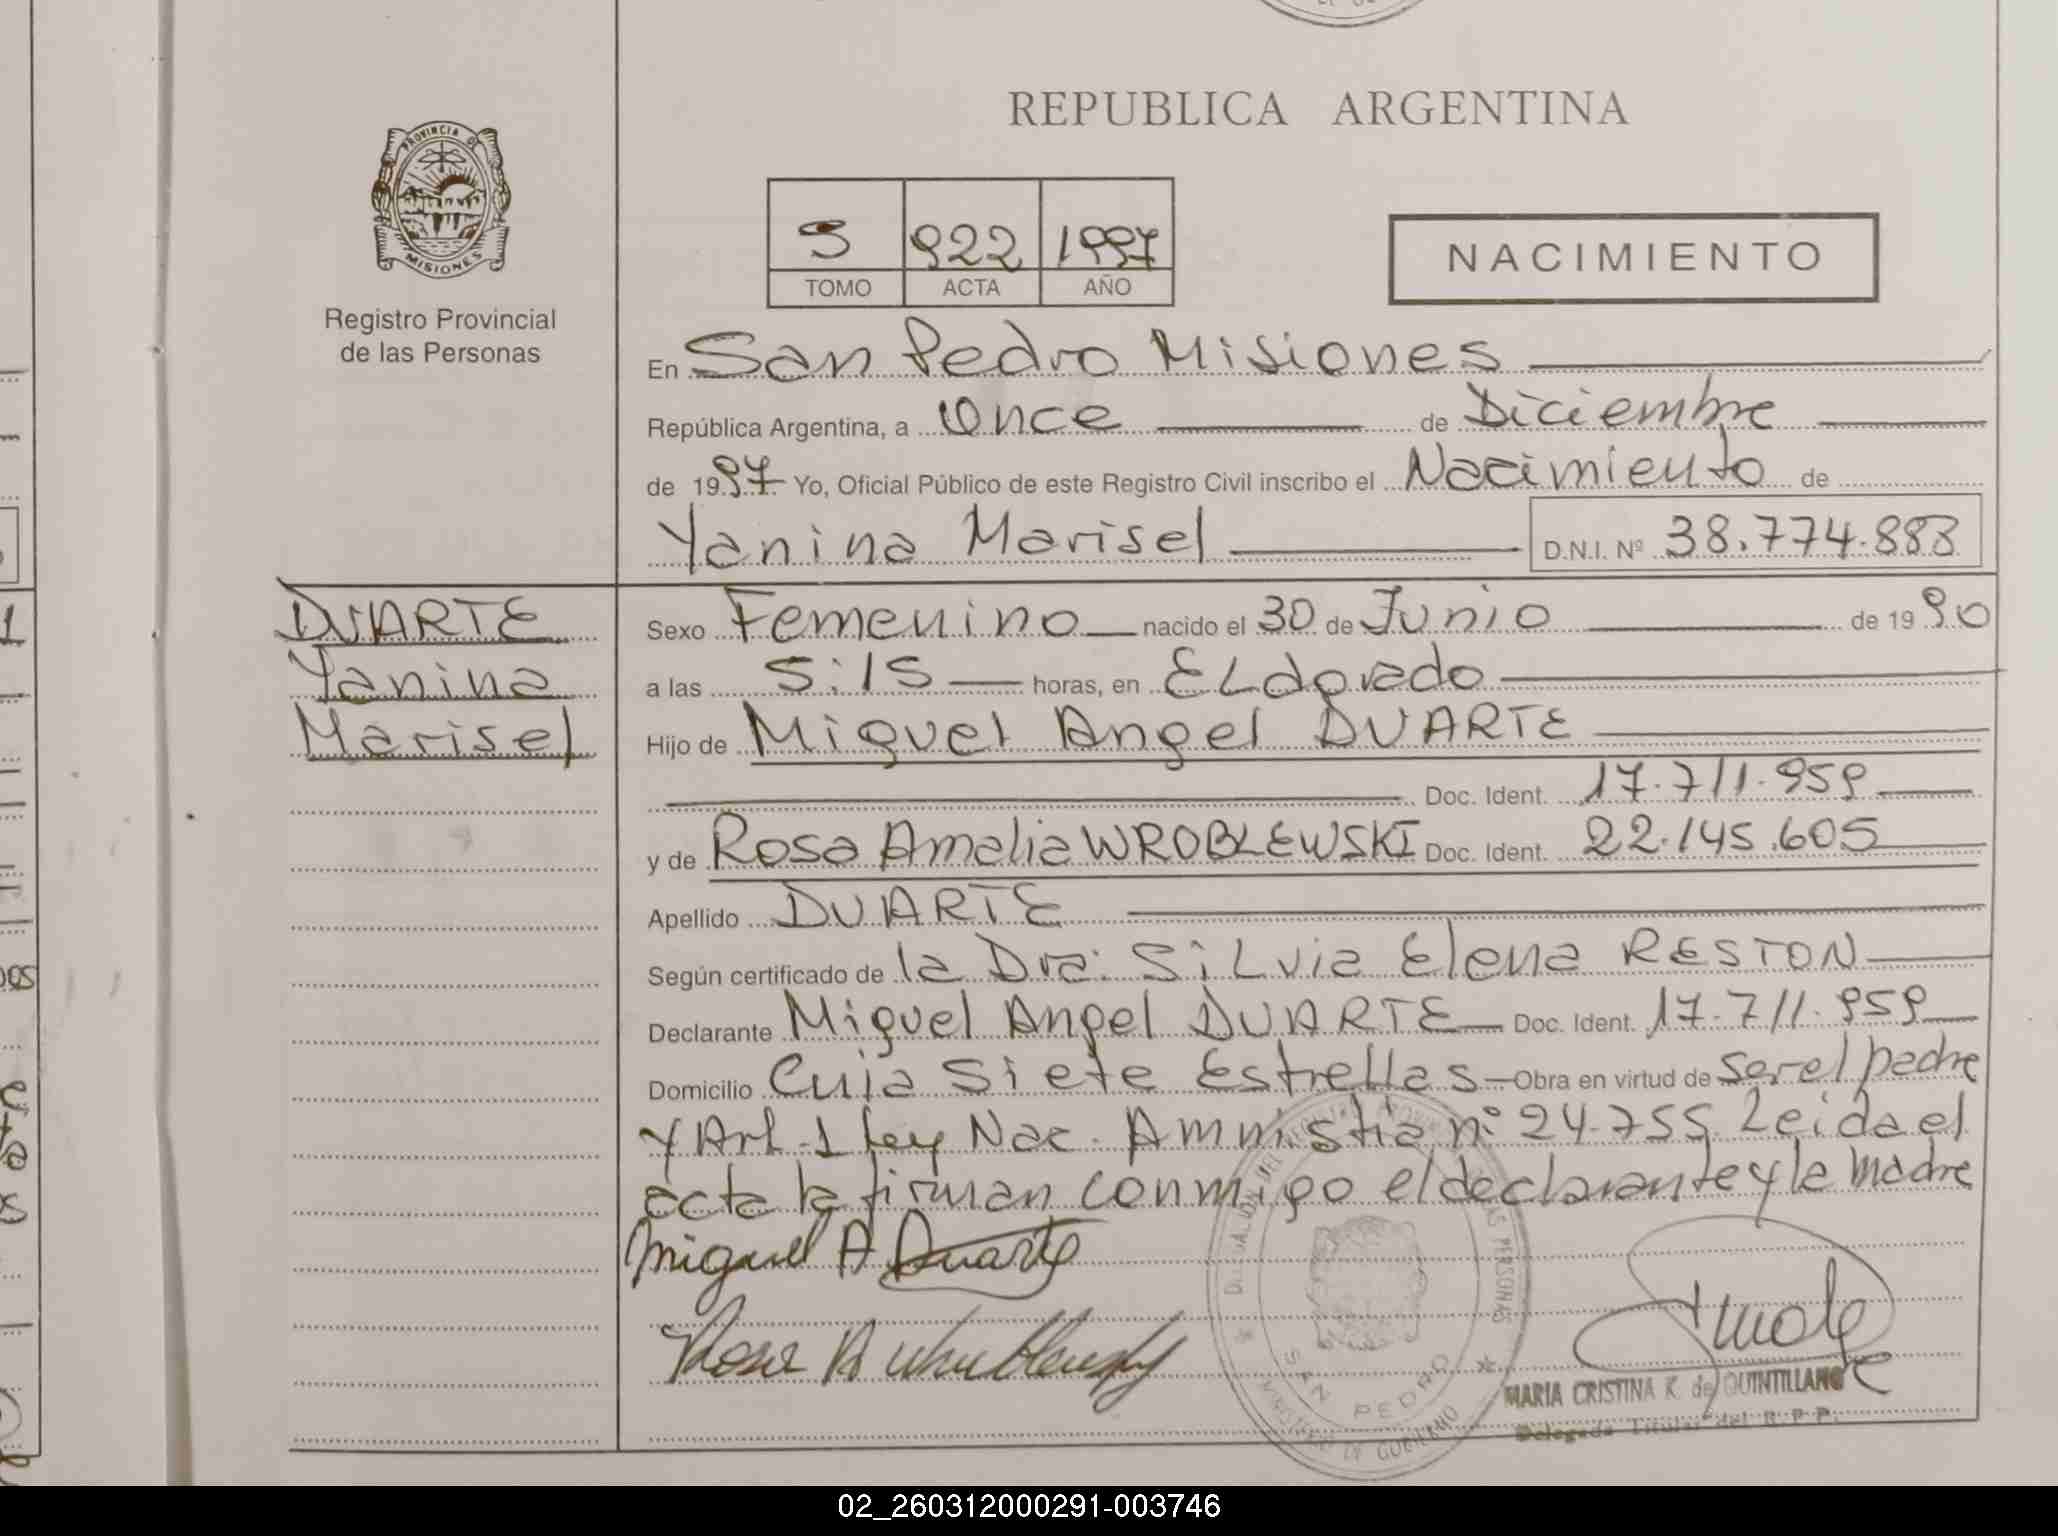 REPUBLICA ARGENTINA
PROVINCIA DE
MISIONES
Registro Provincial
de las Personas
5 922 1997
TOMO ACTA AÑO
NACIMIENTO
En San Pedro Misiones
República Argentina, a Once de Diciembre
de 1997 Yo, Oficial Público de este Registro Civil inscribo el Nacimiento de
Yanina Marisel D.N.I. Nº 38.774.883
DUARTE
Yanina
Marisel
Sexo Femenino nacido el 30 de Junio de 1990
a las 5:15 horas, en ELdorado
Hijo de Miguel Angel DUARTE
Doc. Ident. 17.711.959
y de Rosa Amalia WROBLEWSKI Doc. Ident. 22.145.605
Apellido DUARTE
Según certificado de la Dra: SiLvia Elena RESTON
Declarante Miguel Angel DUARTE Doc. Ident. 17.711.959
Domicilio Cuia Siete Estrellas Obra en virtud de ser el padre
y Art. 1 ley Nac. Amnistia nº 24.755. Leida el
acta la firman conmigo el declarante y la madre
Miguel A Duarte
Rosa A
SAN PEDRO
MINISTERIO DE GOBIERNO
MARIA CRISTINA K. de QUINTILLANO
Delegada Titular del R.P.P.
02_260312000291-003746